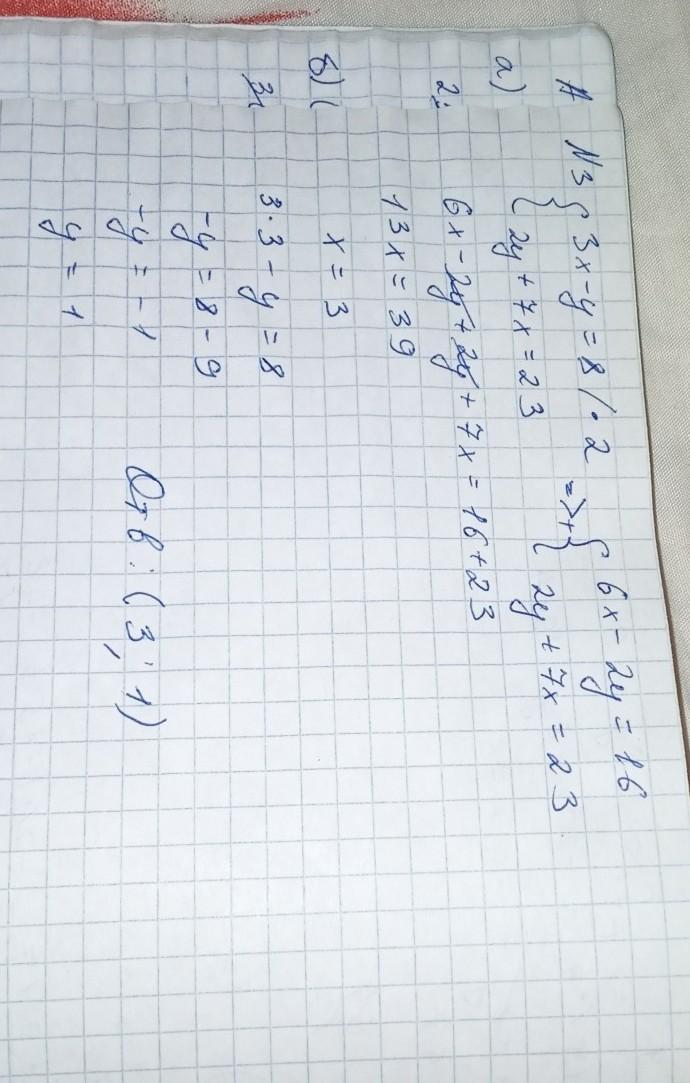 №3
{ 3x - y = 8 / · 2
{ 2y + 7x = 23
=> + { 6x - 2y = 16
{ 2y + 7x = 23
6x - 2y + 2y + 7x = 16 + 23
13x = 39
x = 3
3·3 - y = 8
-y = 8 - 9
-y = -1
y = 1
Отв: (3; 1)
а)
2:
б) (